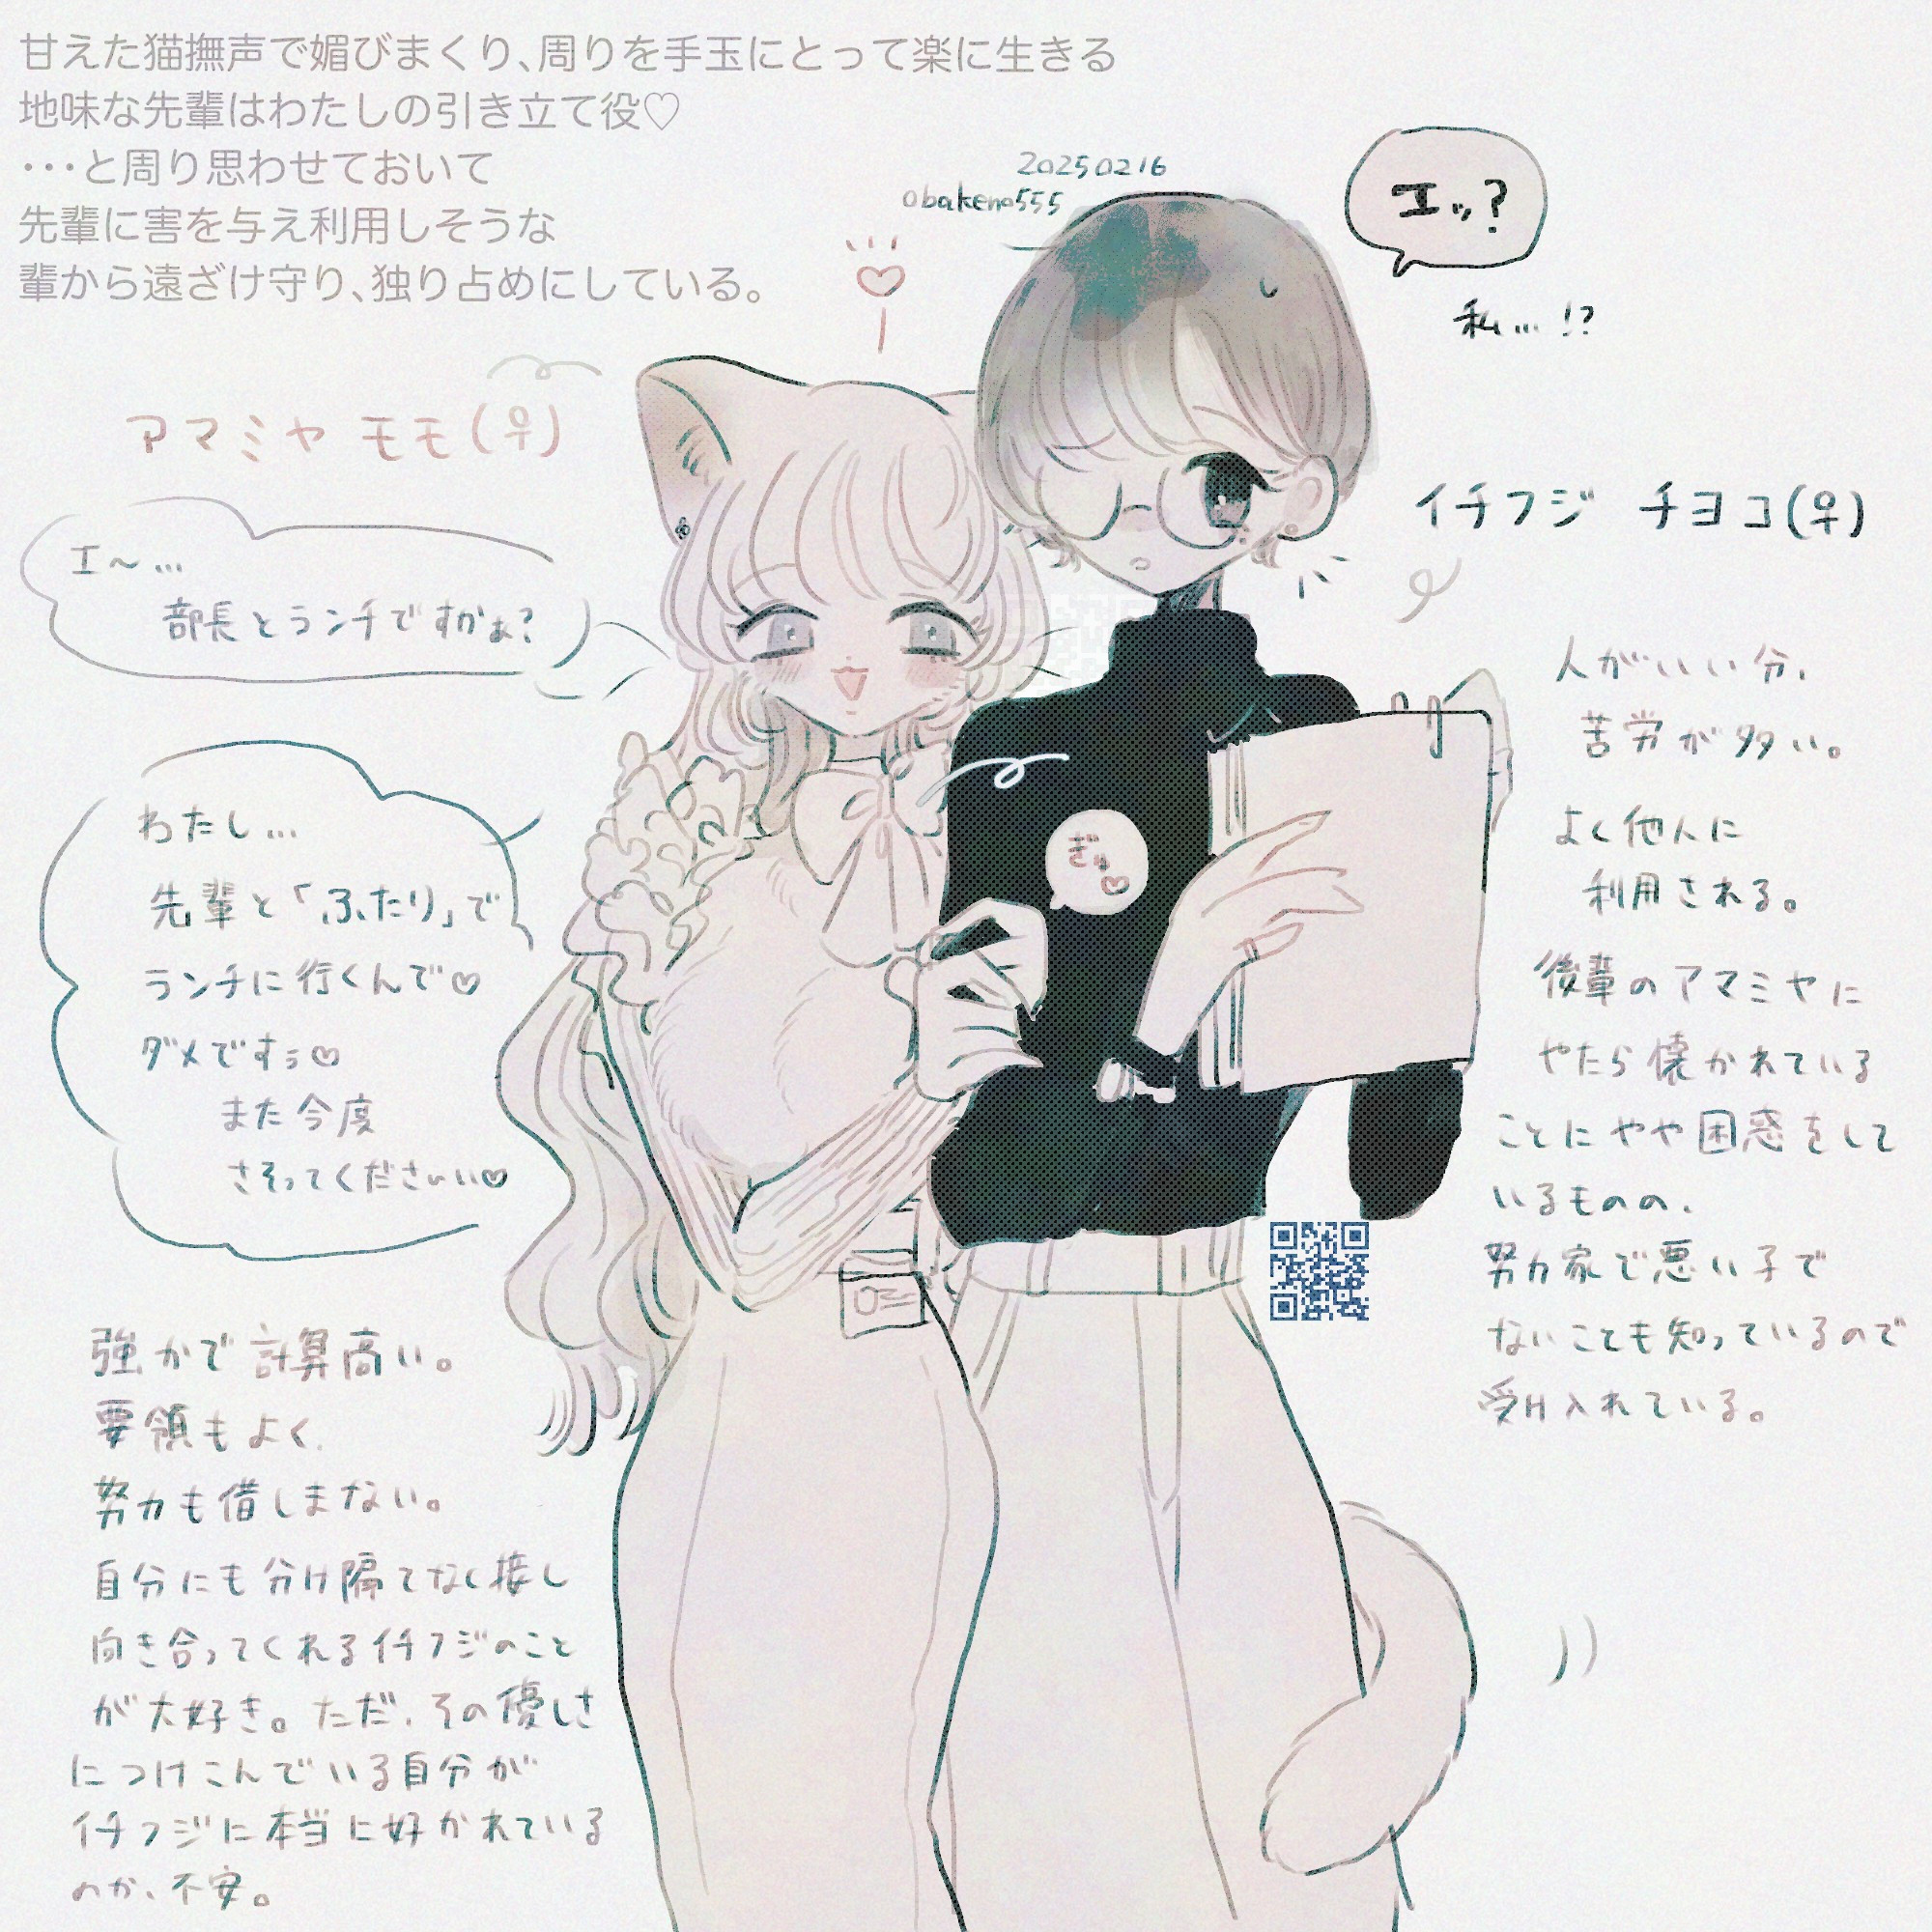 甘えた猫撫声で媚びまくり、周りを手玉にとって楽に生きる
地味な先輩はわたしの引き立て役♡
･･･と周り思わせておいて
先輩に害を与え利用しそうな
輩から遠ざけ守り、独り占めにしている。
20250216
obakeno555
エッ?
私…!?
アマミヤ モモ(♀)
エ〜…
部長とランチですかぁ?
わたし…
先輩と「ふたり」で
ランチに行くんで♡
ダメですぅ♡
また今度
さそってくださぃい♡
強かで計算高い。
要領もよく、
努力も惜しまない。
自分にも分け隔てなく接し
向き合ってくれるイチフジのこと
が大好き。ただ、その優しさ
につけこんでいる自分が
イチフジに本当に好かれている
のか、不安。
ぎゅ♡
イチフジ チヨコ(♀)
人がいい分、
苦労が多い。
よく他人に
利用される。
後輩のアマミヤに
やたら懐かれている
ことにやや困惑をして
いるものの、
努力家で悪い子で
ないことも知っているので
受け入れている。